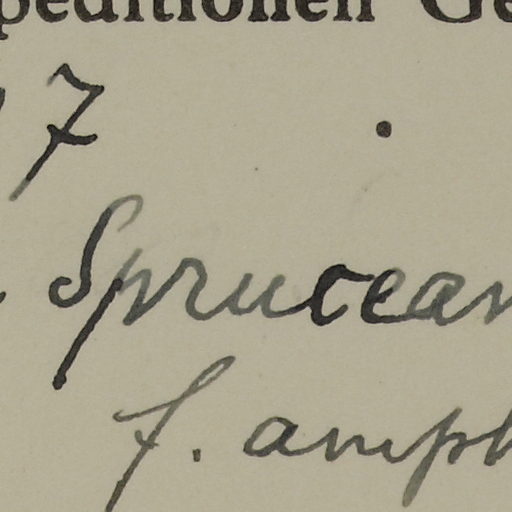 peditionen Ge
7 .
Sprucean
f. amph